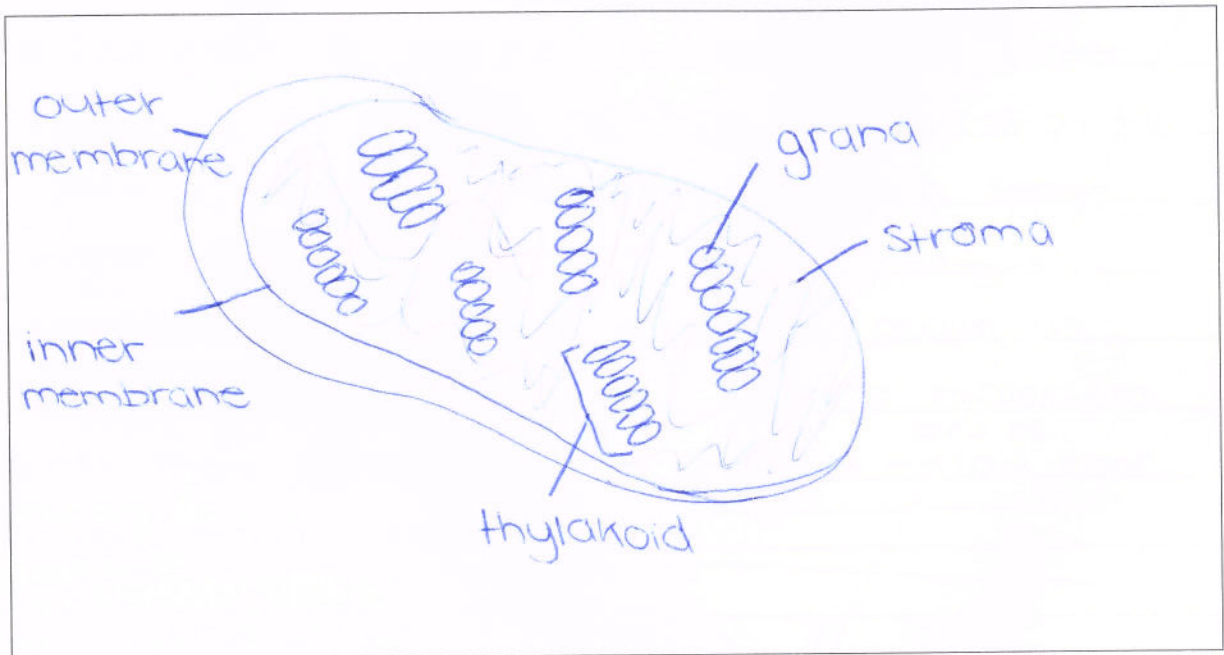 outer
membrane
grana
stroma
inner
membrane
thylakoid